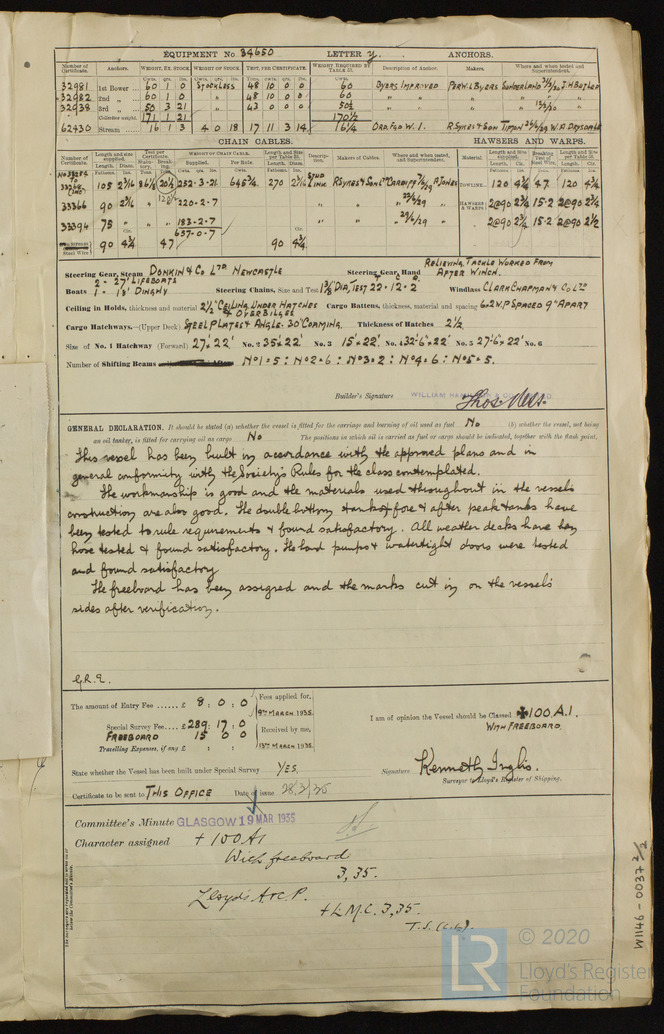 EQUIPMENT No. 34650 LETTER y. ANCHORS.
Number of Certificate. Anchors. WEIGHT, EX. STOCK WEIGHT OF STOCK. TEST, PER CERTIFICATE. WEIGHT REQUIRED BY TABLE 31. Description of Anchor. Makers. Where and when tested and Superintendent.
Cwts. qrs. lbs. Cwts. qrs. lbs. Tons. cwts. qrs. lbs. Cwts.
32981 1st Bower 60 1 0 STOCKLESS 48 10 0 0 60 BYERS IMPROVED PERW. L BYERS SUNDERLAND
32982 2nd " 60 1 0 48 10 0 0 60 " "
32938 3rd " 50 3 21 43 0 0 0 50½ " "
Collective weight. 171 1 21 170½
62430 Stream 16 1 3 4 0 18 17 11 3 14 16¼ ORD. FGD W. I. R SYKES & SON TIPTON W. A DRYSDALE
CHAIN CABLES. HAWSERS AND WARPS.
Number of Certificate. Length and size supplied. Test per Certificate. WEIGHT OF CHAIN CABLE. Length and Size per Table 31. Description. Makers of Cables. Where and when tested, and Superintendent. Material Length and Size supplied. Breaking Test of Steel Wire. Length and Size per Table 31.
105 2 3/16 86¼ 120¼ 252 · 3 · 21 645¾ 270 2 3/16 STUD LINK R SYKES & SON CARDIFF A JONES TOWLINE 120 4¾ 47 120 4¾
33366 90 2 3/16 220 · 2 · 7 " " HAWSERS & WARPS 2@90 2¾ 15·2 2@90 2½
33394 75 " 183 · 2 · 7 " " " 2@90 2¾ 15·2 2@90 2½
637 · 0 · 7
Steel Wire 90 4¾ 47 90 4¾
Steering Gear, Steam DONKIN & Co LTD NEWCASTLE Steering Gear, Hand RELIEVING TACKLE WORKED FROM AFTER WINCH.
Boats 2 - 27' LIFEBOATS 1 - 18' DINGHY Steering Chains, Size and Test 1⅜ DIA, TEST 22 · 12 · 2 Windlass CLARK CHAPMAN & Co LTD
Ceiling in Holds, thickness and material 2½" CEILING UNDER HATCHES & OVER BILGES Cargo Battens, thickness, material and spacing 6×2 W.P SPACED 9" APART
Cargo Hatchways.—(Upper Deck) STEEL PLATES & ANGLE. 30" COAMING. Thickness of Hatches 2½"
Size of No. 1 Hatchway (Forward) 27' × 22' No. 2 35' × 22' No. 3 15' × 22' No. 4 32'·6" × 22' No. 5 27'·6" × 22' No. 6
Number of Shifting Beams No 1 = 5 : No 2 = 6 : No 3 = 2 : No 4 = 6 : No 5 = 5.
Builder's Signature WILLIAM
GENERAL DECLARATION. It should be stated (a) whether the vessel is fitted for the carriage and burning of oil used as fuel No (b) whether the vessel, not being
an oil tanker, is fitted for carrying oil as cargo No The positions in which oil is carried as fuel or cargo should be indicated, together with the flash point,
This vessel has been built in accordance with the approved plans and in
general conformity with the Society's Rules for the class contemplated.
The workmanship is good and the materials used throughout in the vessel's
construction are also good. The double bottom tanks & fore & after peak tanks have
been tested to rule requirements & found satisfactory. All weather decks have been
hose tested & found satisfactory. The hand pumps & watertight doors were tested
and found satisfactory
The freeboard has been assigned and the marks cut in on the vessel's
sides after verification.
G.R.E.
The amount of Entry Fee ...... £ 8 : 0 : 0 Fees applied for,
9TH MARCH 1935.
Special Survey Fee.... £ 289 : 17 : 0 Received by me,
FREEBOARD 15 0 0
13TH MARCH 1935.
Travelling Expenses, if any £ : :
I am of opinion the Vessel should be Classed ✠ 100 A.1.
WITH FREEBOARD.
State whether the Vessel has been built under Special Survey YES. Signature Kenneth Inglis.
Surveyor to Lloyd's Register of Shipping.
Certificate to be sent to THIS OFFICE Date of issue 28/3/35
Committee's Minute GLASGOW 19 MAR 1935
Character assigned + 100 A1
With freeboard
3,35.
Lloyd's A & C. P.
+ L.M.C. 3,35.
T.S. (C.L).
W1146-0037 2/2
LR © 2020
Lloyd's Register
Foundation